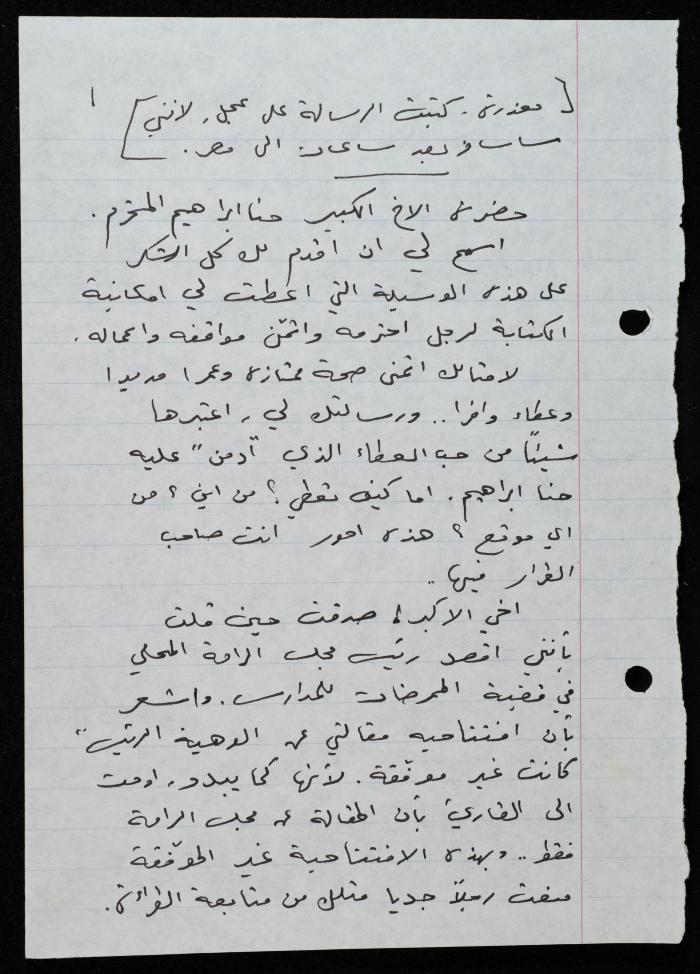 [معذرة. كتبت الرسالة على عجل، لأنني
سأسافر بعد ساعات الى مصر.]
حضرة الاخ الكبير حنا ابراهيم المحترم.
اسمح لي ان اقدم لك كل الشكر
على هذه الوسيلة التي اعطت لي امكانية
الكتابة لرجل احترمه واثمّن مواقفه واعماله.
لامثالك اتمنى صحة ممتازة وعمرا مديدا
وعطاء وافرا.. ورسالتك لي، اعتبرها
شيئاً من حب العطاء الذي "أدمن" عليه
حنا ابراهيم. اما كيف تعطي؟ من اين؟ من
اي موقع؟ هذه امور انت صاحب
القرار فيها..
اخي الاكبر! صدقت حين قلت
بأنني اقصد رئيس مجلس الرامة المحلي
في قضية الممرضات للمدارس. واشعر
بأن افتتاحيه مقالتي عن الرئيس"
كانت غير موفّقة. لأنها كما يبدو، اوحت
الى القاريء بأن المقالة عن مجلس الرامة
فقط.. وبهذه الافتتاحية غير الموفّقة
منعت رجلاً جديا مثلك من متابعة القراءة.